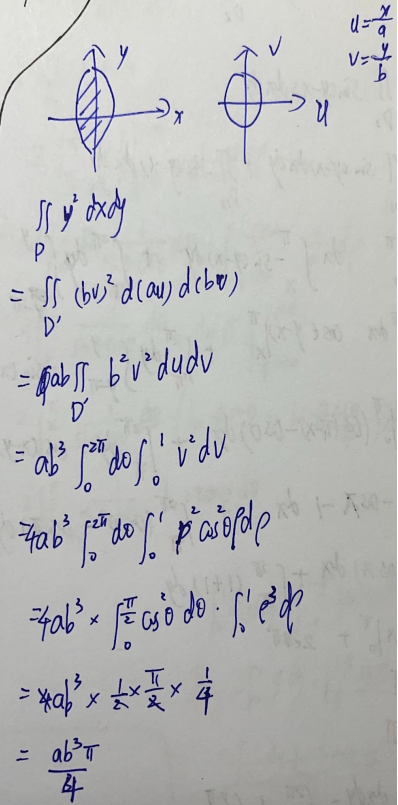 u = x/a
v = y/b
y
x
v
u
∬_D y² dxdy
= ∬_D' (bv)² d(au) d(bv)
= ab ∬_D' b² v² du dv
= ab³ ∫_0^{2π} dθ ∫_0^1 v² dv
= 4ab³ ∫_0^{2π} dθ ∫_0^1 ρ² cos²θ ρ dρ
= 4ab³ × ∫_0^{π/2} cos²θ dθ · ∫_0^1 ρ³ dρ
= 4ab³ × 1/2 × π/2 × 1/4
= ab³π/4